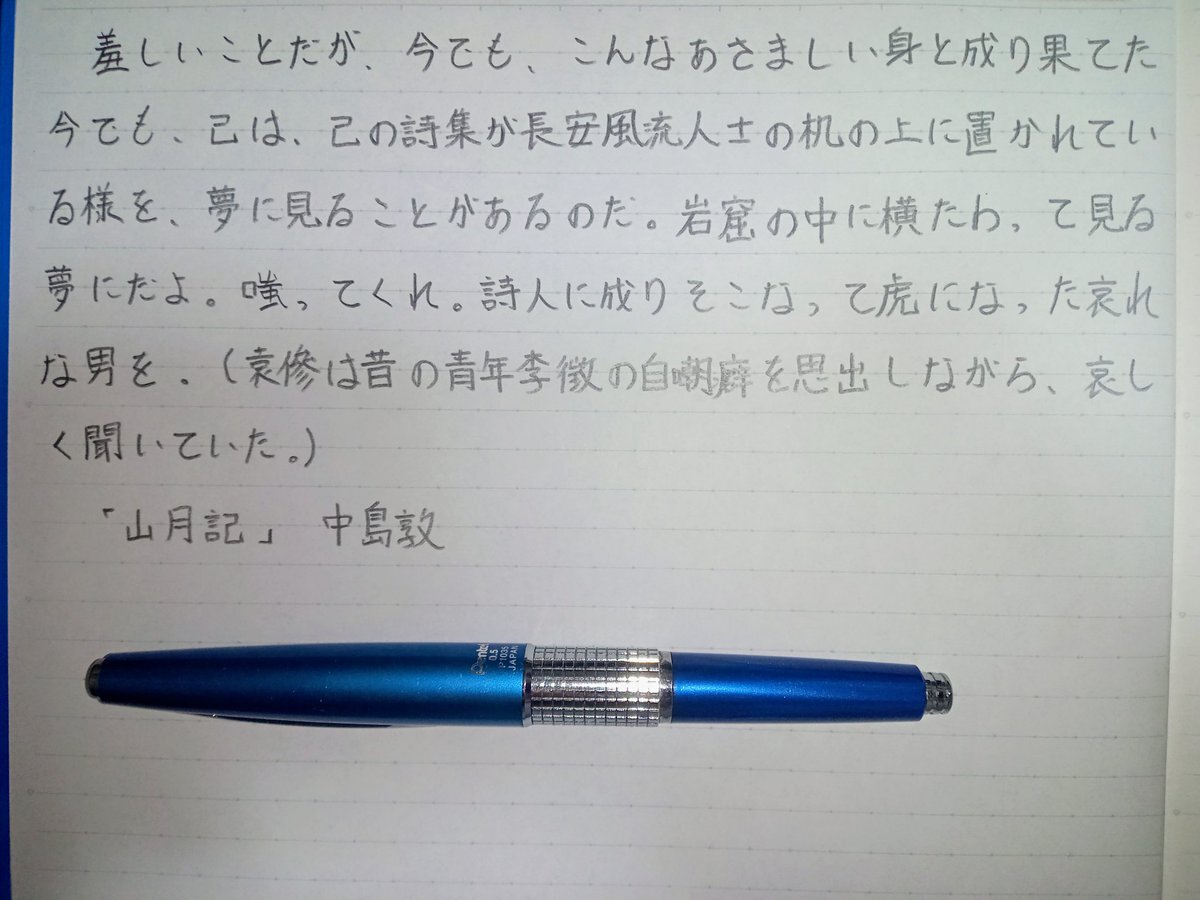 羞しいことだが、今でも、こんなあさましい身と成り果てた
今でも、己は、己の詩集が長安風流人士の机の上に置かれてい
る様を、夢に見ることがあるのだ。岩窟の中に横たわって見る
夢にだよ。嗤ってくれ。詩人に成りそこなって虎になった哀れ
な男を。(袁傪は昔の青年李徴の自嘲癖を思出しながら、哀し
く聞いていた。)
「山月記」 中島敦
Pentel
0.5
P1035
JAPAN